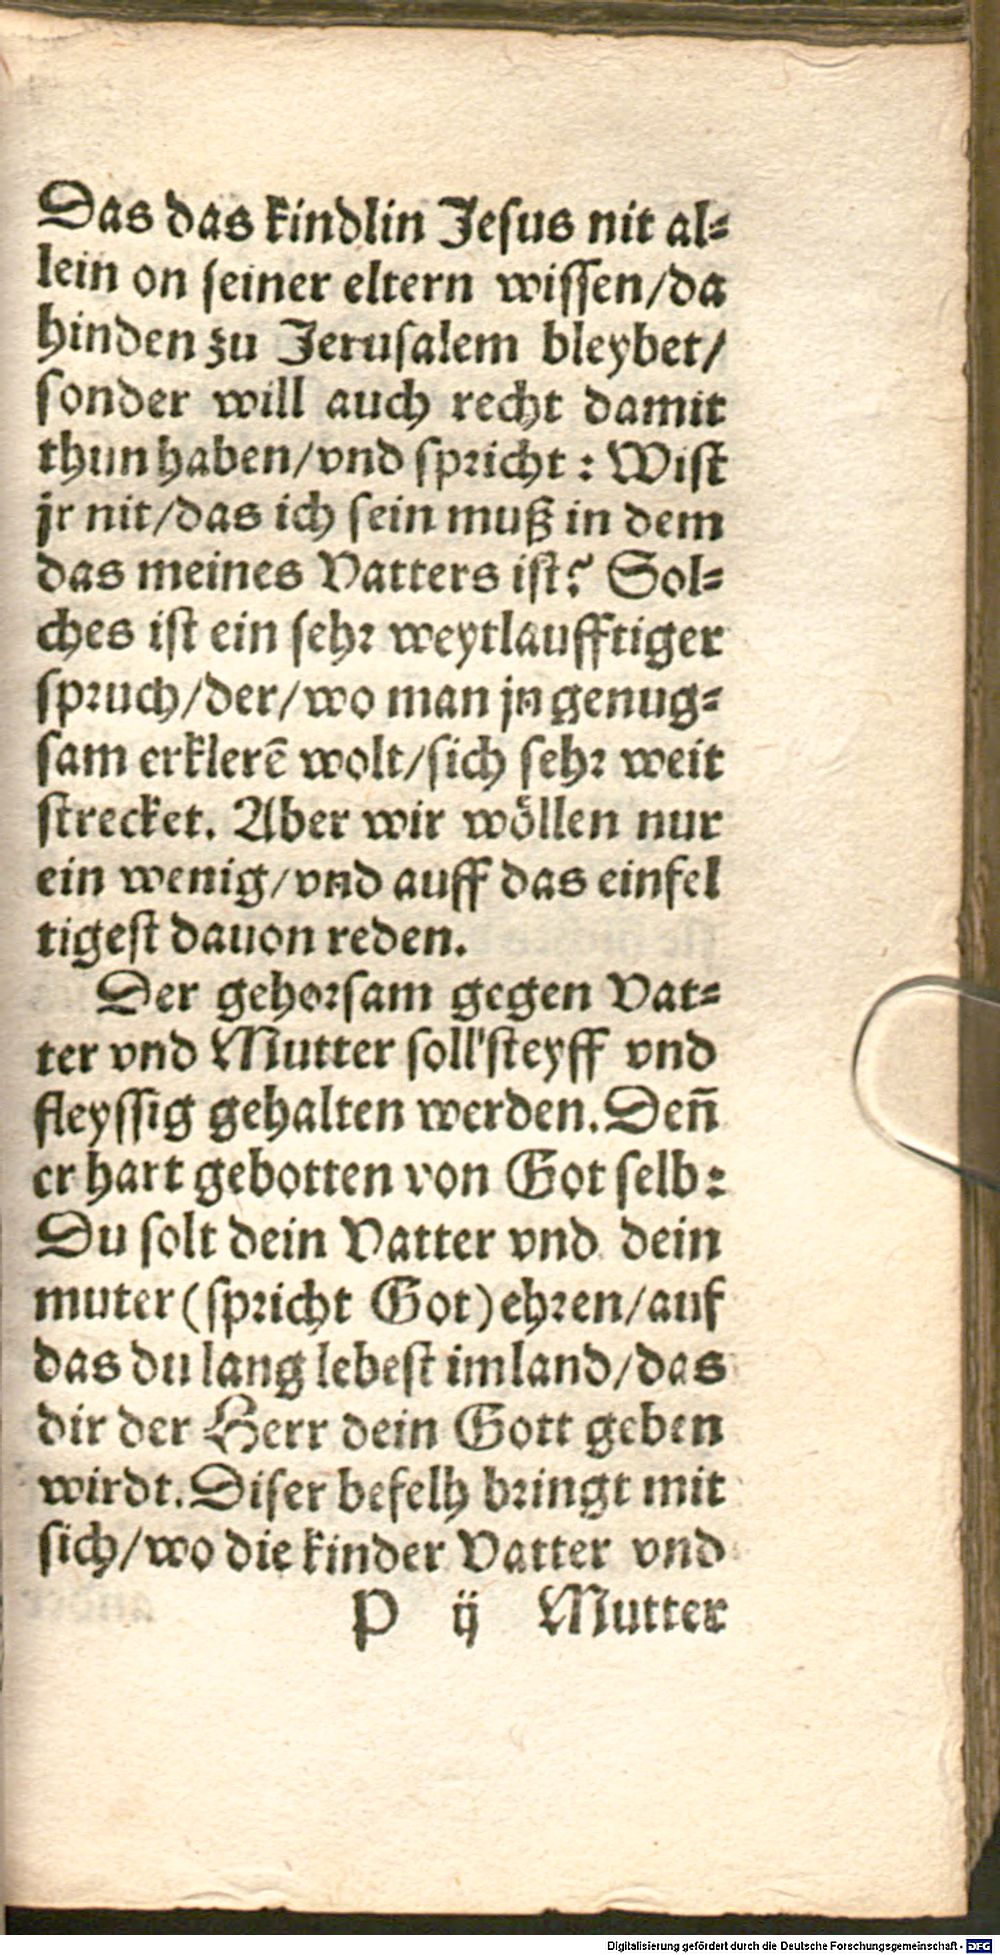 Das das kindlin Jesus nit al⸗
lein on seiner eltern wissen/da
hinden zu Jerusalem bleybet/
sonder will auch recht damit
thun haben/vnd spricht: Wist
jr nit/das ich sein muß in dem
das meines Vatters ist? Sol⸗
ches ist ein sehr weytlaufftiger
spruch/der/wo man jn genug⸗
sam erklerē wolt/sich sehr weit
strecket. Aber wir wöllen nur
ein wenig/vnd auff das einfel
tigest dauon reden.
Der gehorsam gegen Vat⸗
ter vnd Mutter soll steyff vnd
fleyssig gehalten werden. Deñ
er hart gebotten von Got selb:
Du solt dein Vatter vnd dein
muter (spricht Got) ehren/auf
das du lang lebest im land/das
dir der Herr dein Gott geben
wirdt. Diser befelh bringt mit
sich/wo die kinder Vatter vnd
P ij Mutter
Digitalisierung gefördert durch die Deutsche Forschungsgemeinschaft - DFG